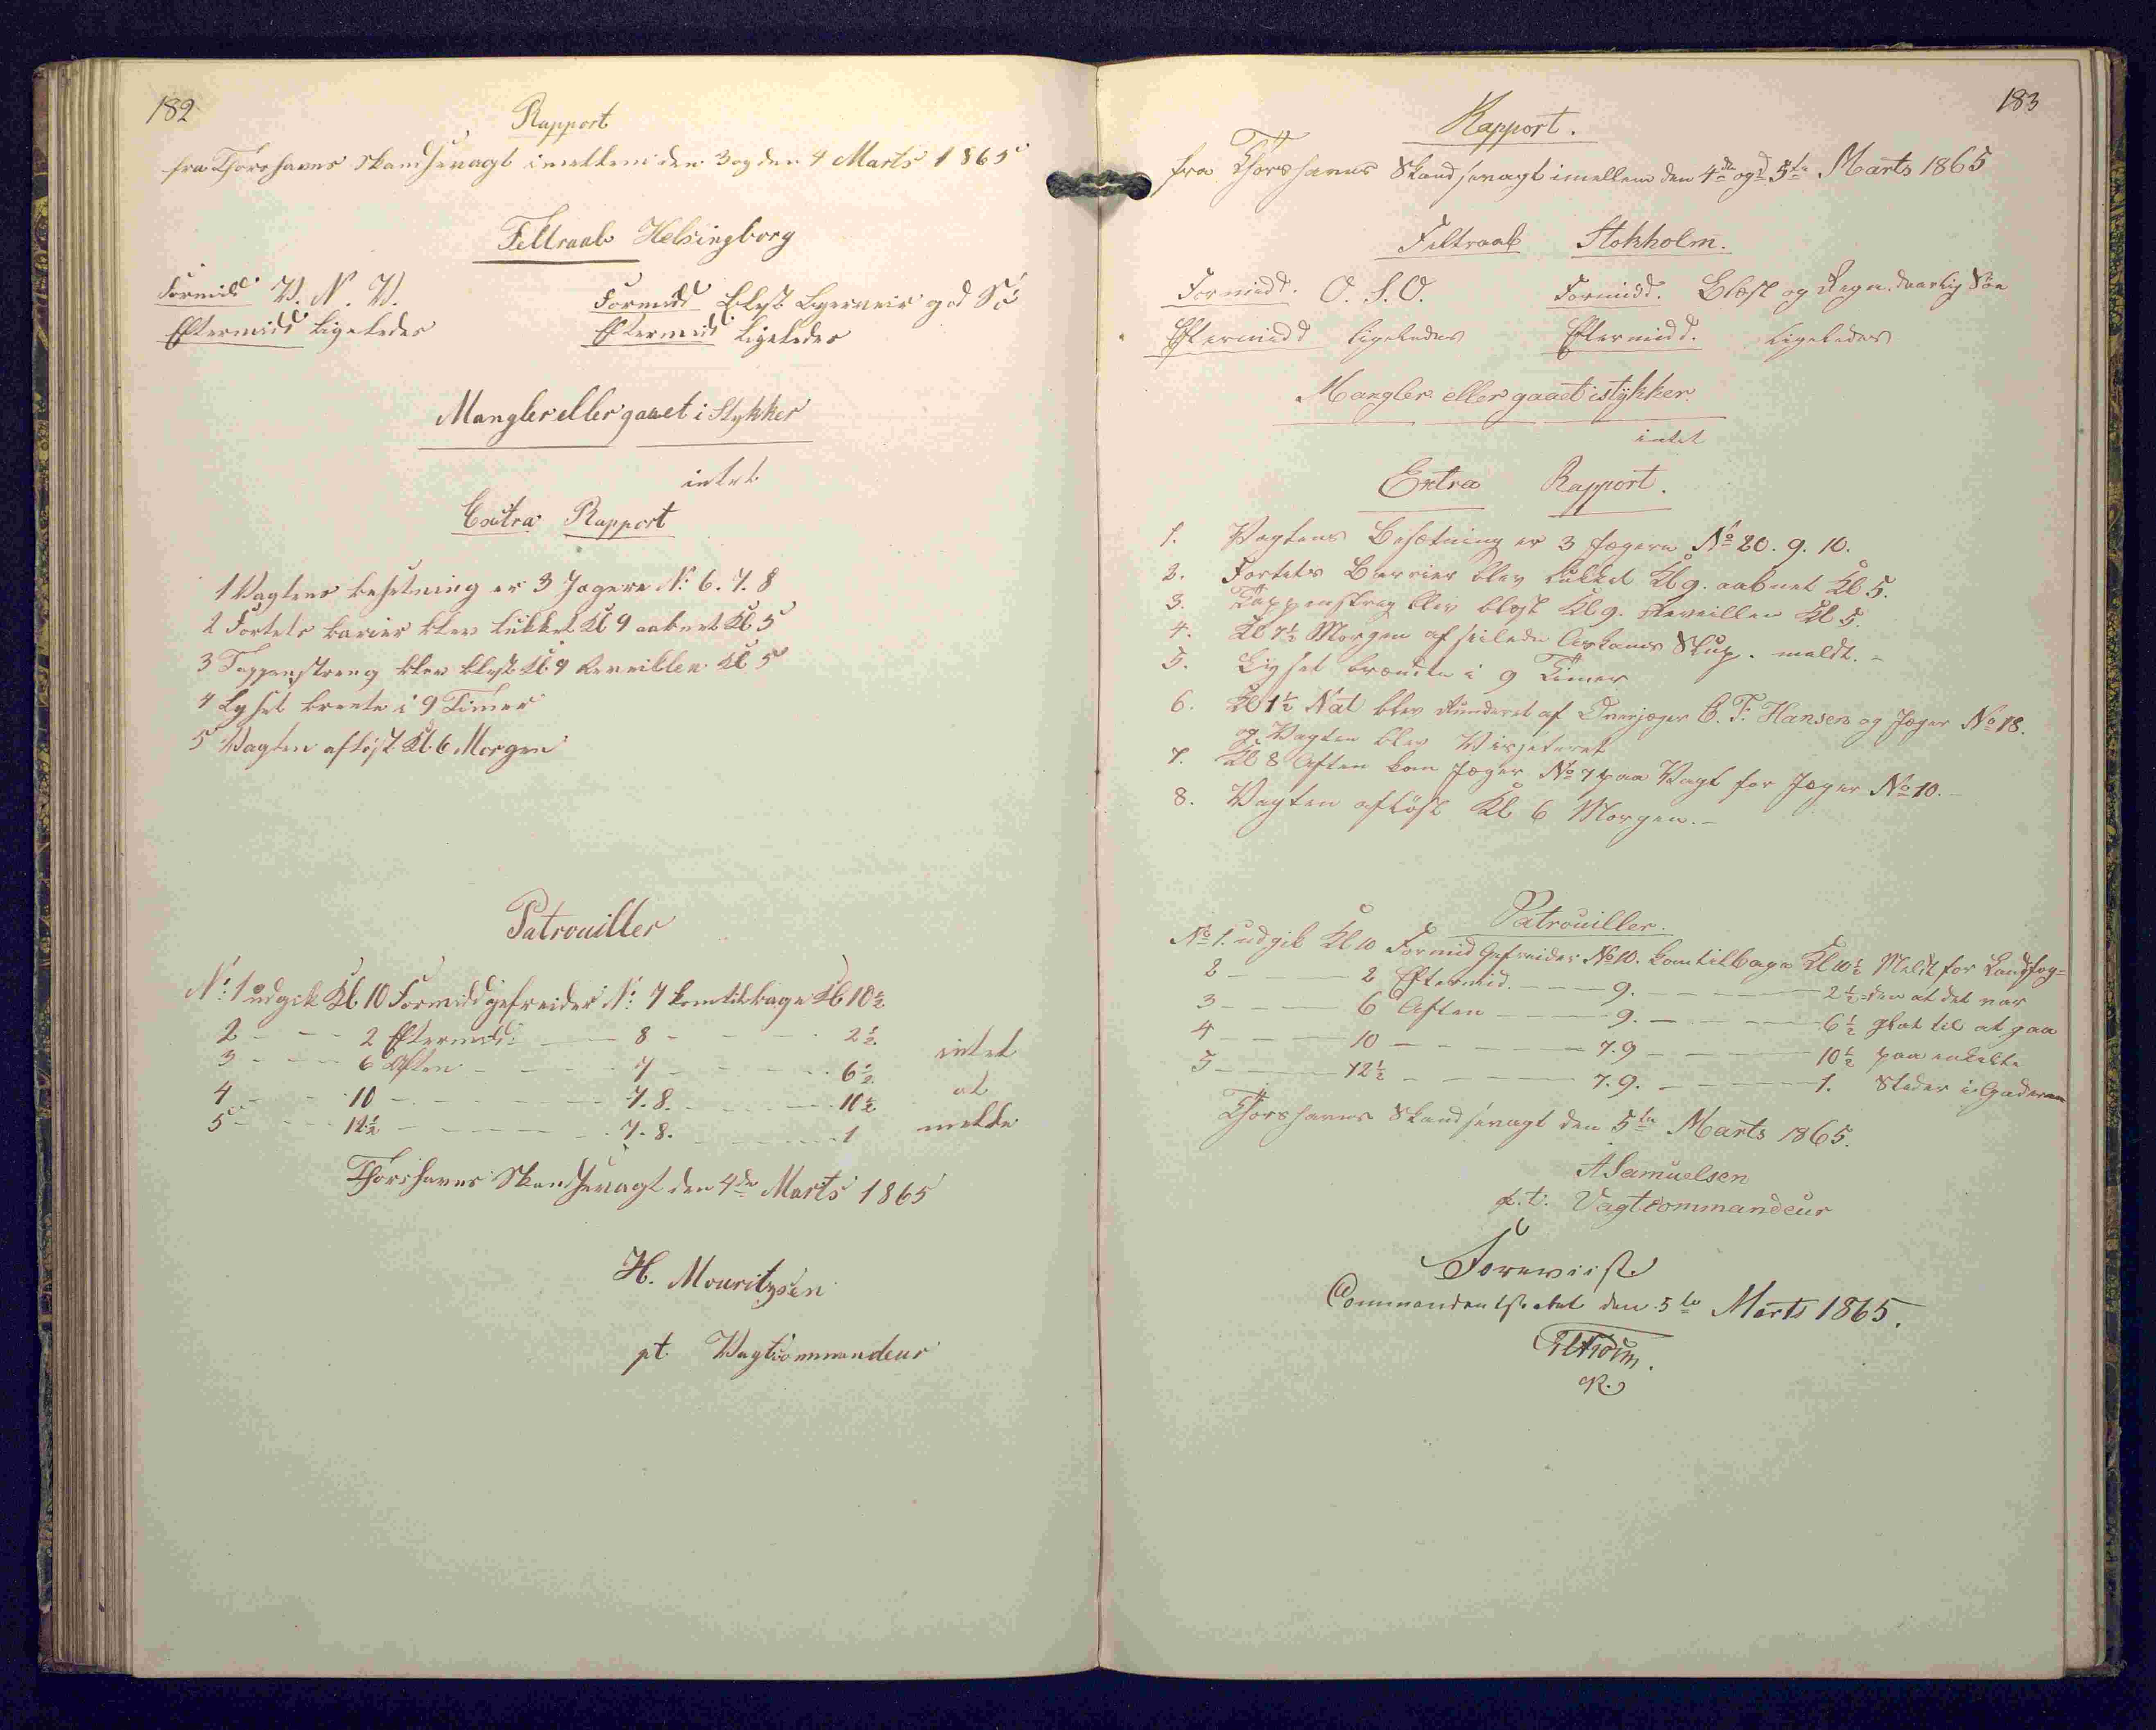 182
Rapport
fra Thorshavns Skandsevagt imellem den 3 og den 4 Marts 1865
Feltraab Helsingborg
Formidd V. N. V.
Eftermidd ligeledes
Formidd Blæst Bgeveir god Sö
Eftermidd ligeledes
Mangler eller gaaet i Stykker
intet
Extra Rapport
1 Vagtens besetning er 3 Jægere N: 6. 7. 8
2 Fortets barier blev lukket Kl 9 aabnet Kl 5
3 Tappenstreng blev blæst Kl. 9 Reveillen Kl 5
4 Lyset brente i 9 Timer
5 Vagten aflöst Kl. 6 Morgen
Patrouiller
N: 1 udgik Kl. 10 Formidd gefreider N: 7 kom tilbage Kl 10½
2 - - - 2 Eftermidd: - - - 8 - - - 2½ intet
3 - - - 6 Aften - - - 7 - - - 6½
4 - - - 10 - - - 7. 8. - - - 10½ at
5 - - - 12½ - - - 7. 8. - - - 1 melde
Thorshavns Skandsevagt den 4de Marts 1865
H. Mouritzsen
pt Vagtcommandeur
183
Rapport.
fra Thorshavns Skandsevagt imellem den 4de og d 5te Marts 1865
Feltraab Stokholm.
Formidd. O. S. O.
Eftermidd ligeledes
Formidd. Blæst og Regn. daarlig Söe
Eftermidd. ligeledes
Mangler eller gaaet istykker.
intet
Extra Rapport.
1. Vagtens Besætning er 3 Jægere No 20. 9. 10.
2. Fortets Barrier blev lukket Kl 9. aabnet Kl 5.
3. Tappenstreg blev blæst Kl 9. Reveillen Kl 5.
4. Kl 7½ Morgen afseilede Skup. meldt. -
5. Lyset brændte i 9 Timer
6. Kl 1½ Nat blev Runderet af Overjæger C. F. Hansen og Jæger No 18.
og Vagten blev Visiteret
7. Kl 8 Aften kom Jæger No 7 paa Vagt for Jæger No 10. -
8. Vagten aflöst Kl 6 Morgen. -
Patrouiller.
No 1. udgik Kl 10 Formid Gefreider No 10. kom tilbage Kl 10½ Meldt for Landfog=
2 - - - 2 Eftermid. - - - 9. - - - 2½ den at det var
3 - - - 6 Aften - - - 9. - - - 6½ glat til at gaa
4 - - - 10 - - - 7. 9 - - - 10½ paa enkelte
5 - - - 12½ - - - 7. 9. - - - 1. Steder i Gaderne
Thorshavns Skandsevagt den 5te Marts 1865.
A Samuelsen
p. t. Vagtcommandeur
Foreviist
Commandantskabet den 5te Marts 1865.